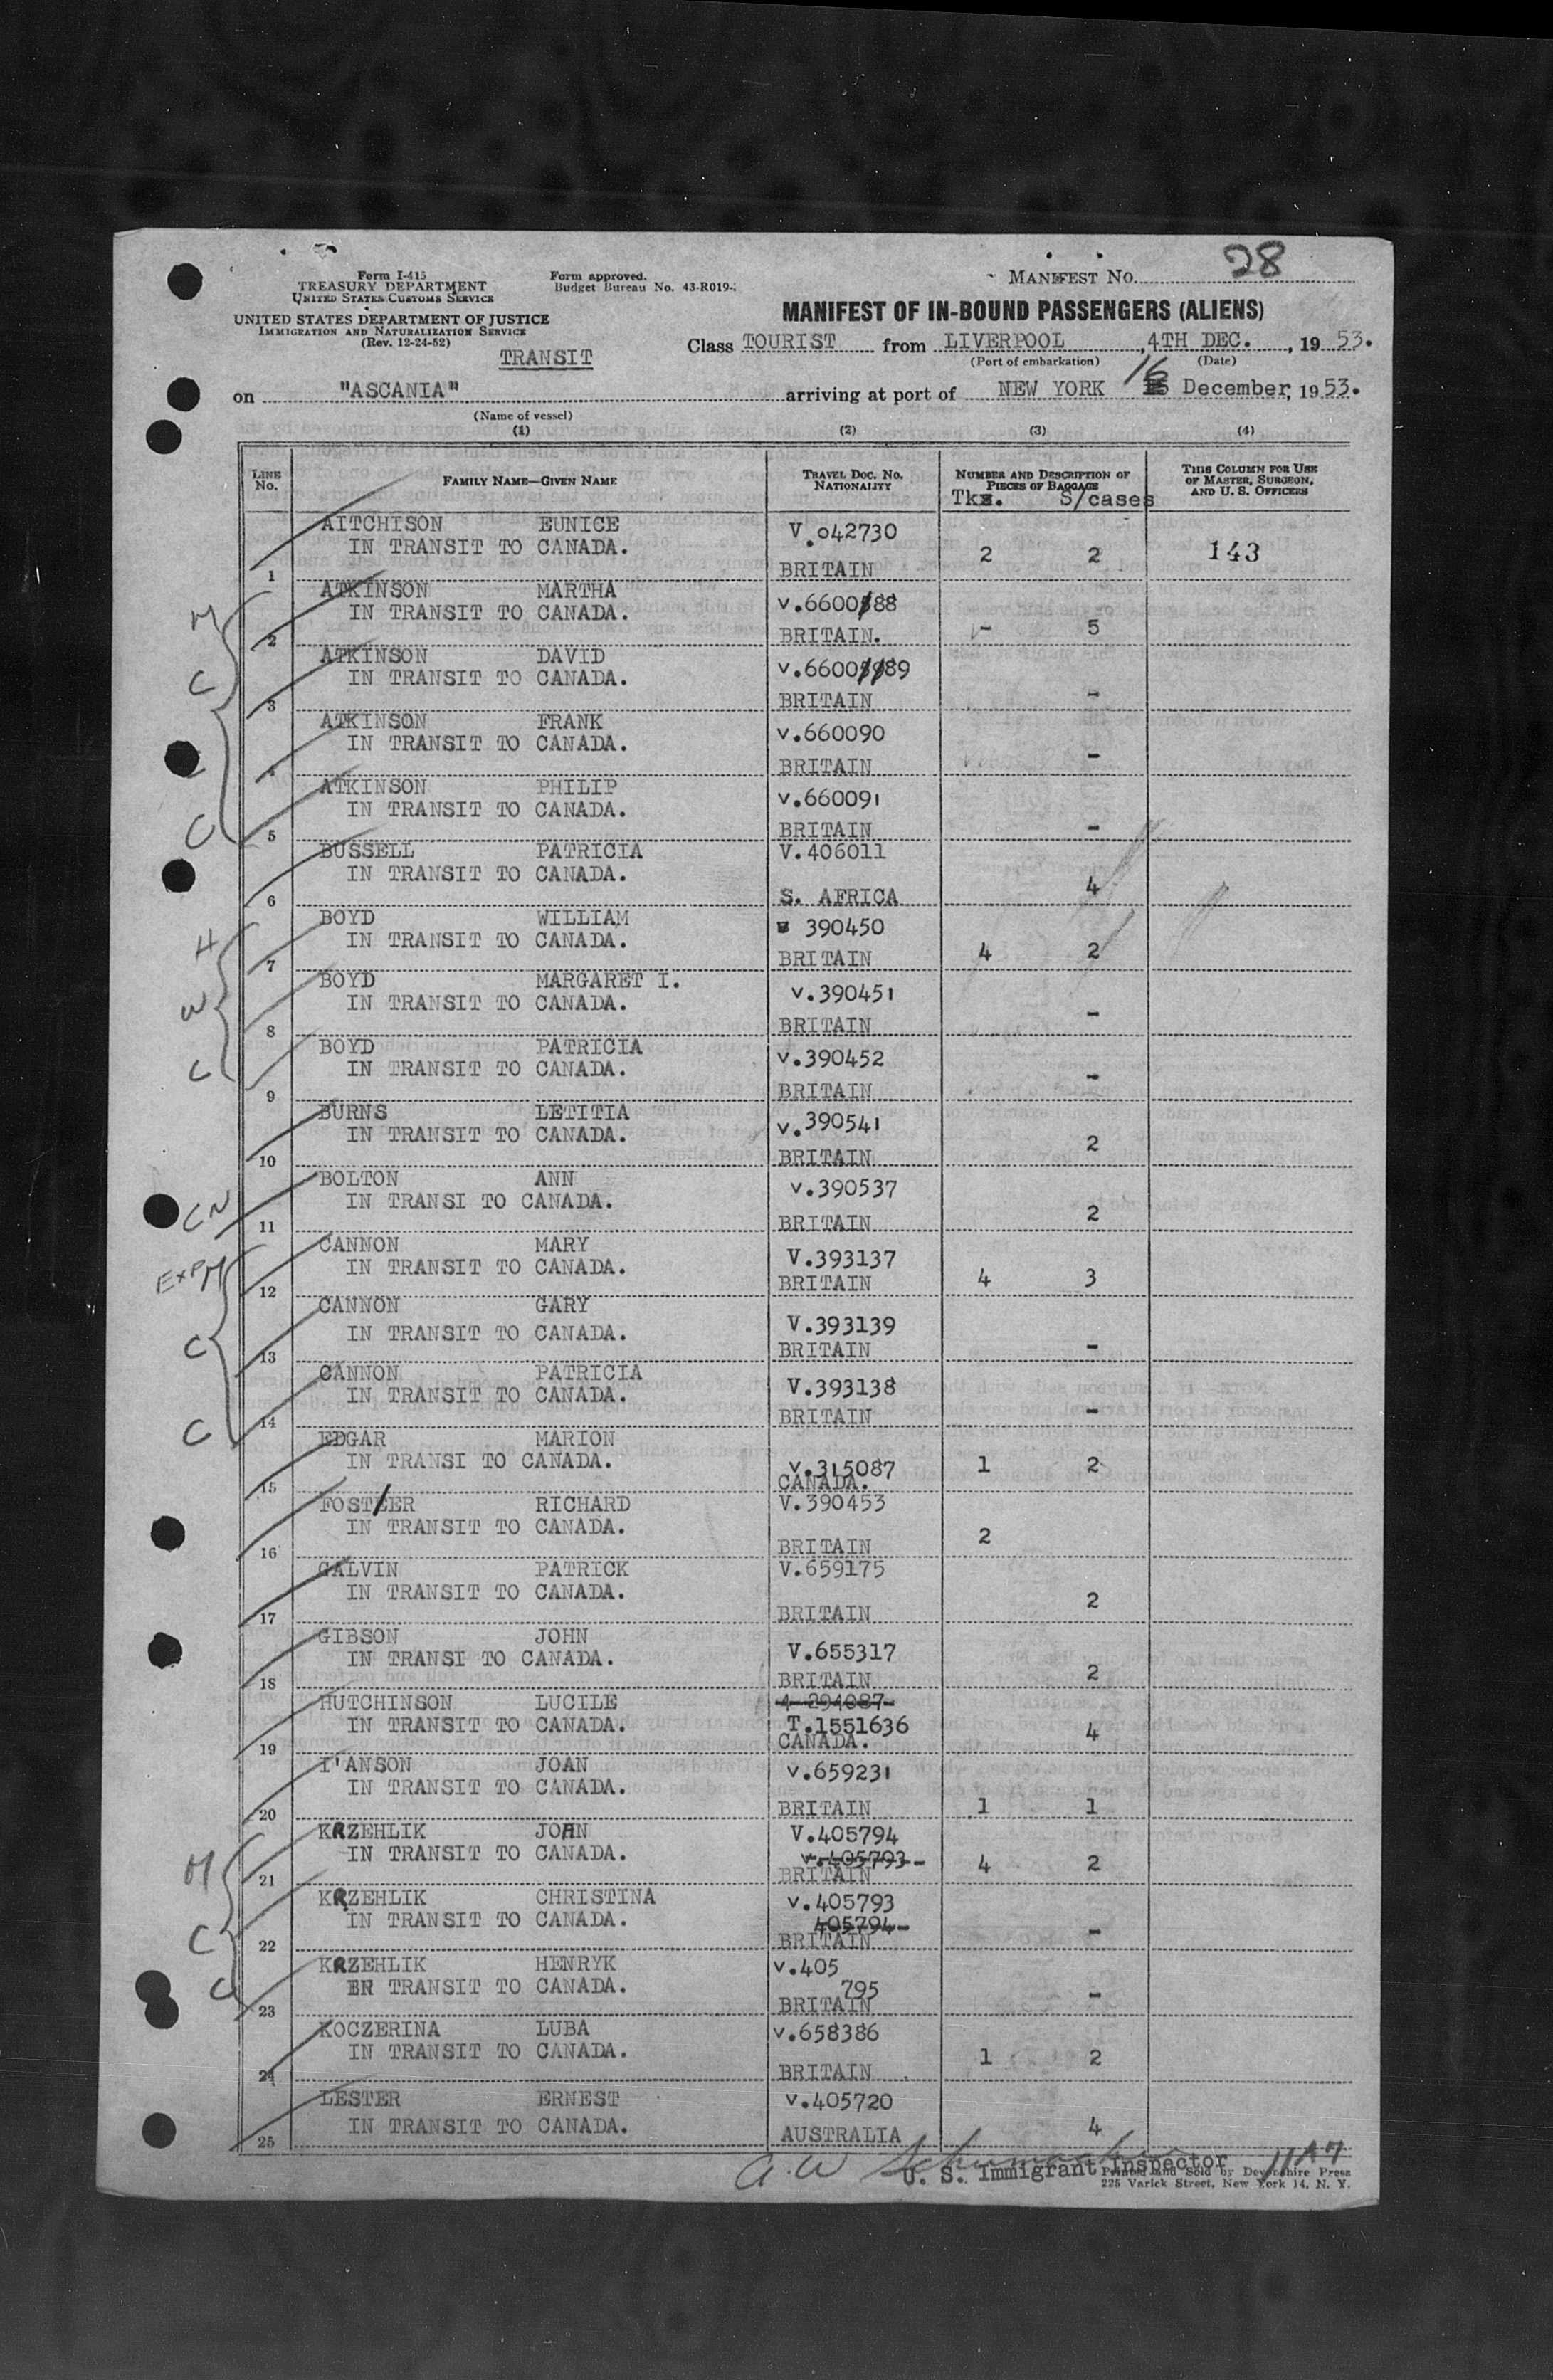 28
Form I-415
TREASURY DEPARTMENT
UNITED STATES CUSTOMS SERVICE
UNITED STATES DEPARTMENT OF JUSTICE
IMMIGRATION AND NATURALIZATION SERVICE
(Rev. 12-24-52)
Form approved.
Budget Bureau No. 43-R019-
MANIFEST NO.
MANIFEST OF IN-BOUND PASSENGERS (ALIENS)
TRANSIT
Class TOURIST from LIVERPOOL, 4TH DEC., 1953.
(Port of embarkation) (Date)
on "ASCANIA" arriving at port of NEW YORK 16 December, 1953.
(Name of vessel)
(1) (2) (3) (4)
LINE NO. FAMILY NAME—GIVEN NAME TRAVEL DOC. NO. NATIONALITY NUMBER AND DESCRIPTION OF PIECES OF BAGGAGE THIS COLUMN FOR USE OF MASTER, SURGEON, AND U. S. OFFICERS
Tks. S/cases
AITCHISON EUNICE V.042730
IN TRANSIT TO CANADA. 2 2 143
1 BRITAIN
ATKINSON MARTHA v.660088
M IN TRANSIT TO CANADA.
2 BRITAIN. - 5
ATKINSON DAVID v.660089
C IN TRANSIT TO CANADA.
3 BRITAIN -
ATKINSON FRANK v.660090
IN TRANSIT TO CANADA.
4 BRITAIN -
ATKINSON PHILIP v.660091
C IN TRANSIT TO CANADA.
5 BRITAIN -
BUSSELL PATRICIA V.406011
IN TRANSIT TO CANADA.
6 S. AFRICA 4
BOYD WILLIAM 390450
H IN TRANSIT TO CANADA.
7 BRITAIN 4 2
BOYD MARGARET I. v.390451
W IN TRANSIT TO CANADA.
8 BRITAIN -
BOYD PATRICIA v.390452
C IN TRANSIT TO CANADA.
9 BRITAIN -
BURNS LETITIA v.390541
IN TRANSIT TO CANADA.
10 BRITAIN 2
BOLTON ANN v.390537
CN IN TRANSI TO CANADA.
11 BRITAIN 2
CANNON MARY V.393137
EXP M IN TRANSIT TO CANADA.
12 BRITAIN 4 3
CANNON GARY V.393139
C IN TRANSIT TO CANADA.
13 BRITAIN -
CANNON PATRICIA V.393138
C IN TRANSIT TO CANADA.
14 BRITAIN -
EDGAR MARION
IN TRANSI TO CANADA. v.315087 1 2
15 CANADA.
FOSTER RICHARD V.390453
IN TRANSIT TO CANADA. 2
16 BRITAIN
GALVIN PATRICK V.659175
IN TRANSIT TO CANADA.
17 BRITAIN 2
GIBSON JOHN V.655317
IN TRANSI TO CANADA.
18 BRITAIN 2
HUTCHINSON LUCILE 4 294087
IN TRANSIT TO CANADA. T.1551636 4
19 CANADA.
I'ANSON JOAN v.659231
IN TRANSIT TO CANADA.
20 BRITAIN 1 1
KRZEHLIK JOHN V.405794
M IN TRANSIT TO CANADA. v.405793
21 BRITAIN 4 2
KRZEHLIK CHRISTINA v.405793
C IN TRANSIT TO CANADA. 405794
22 BRITAIN -
KRZEHLIK HENRYK v.405
C IN TRANSIT TO CANADA. 795
23 BRITAIN -
KOCZERINA LUBA v.658386
IN TRANSIT TO CANADA.
24 BRITAIN 1 2
LESTER ERNEST v.405720
IN TRANSIT TO CANADA.
25 AUSTRALIA 4
U. S. Immigrant Inspector
Printed and Sold by Devonshire Press
225 Varick Street, New York 14, N. Y.